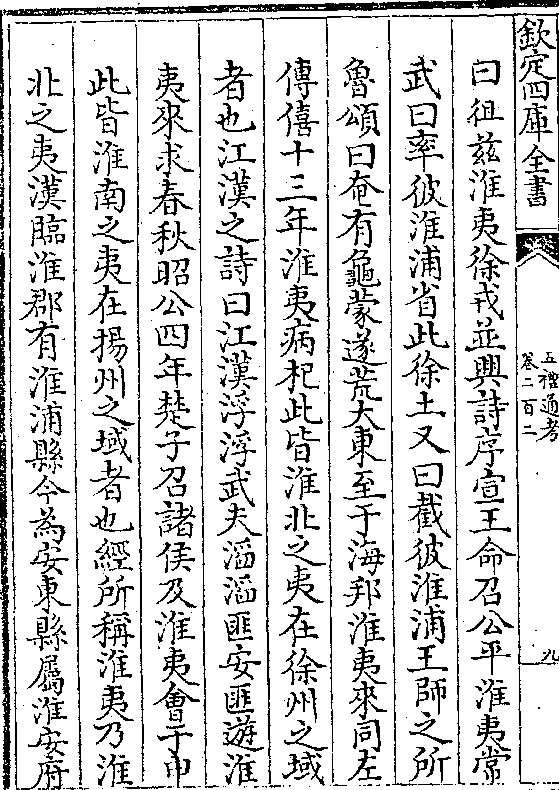 欽定四庫全書
五禮通考
卷二百二
九
曰徂茲淮夷徐戎並興詩序宣王命召公平淮夷常
武曰率彼淮浦省此徐土又曰截彼淮浦王師之所
魯頌曰奄有龜蒙遂荒大東至于海邦淮夷來同左
傳僖十三年淮夷病杞此皆淮北之夷在徐州之域
者也江漢之詩曰江漢浮浮武夫滔滔匪安匪遊淮
夷來求春秋昭公四年楚子召諸侯及淮夷會于申
此皆淮南之夷在揚州之域者也經所稱淮夷乃淮
北之夷漢臨淮郡有淮浦縣今為安東縣屬淮安府